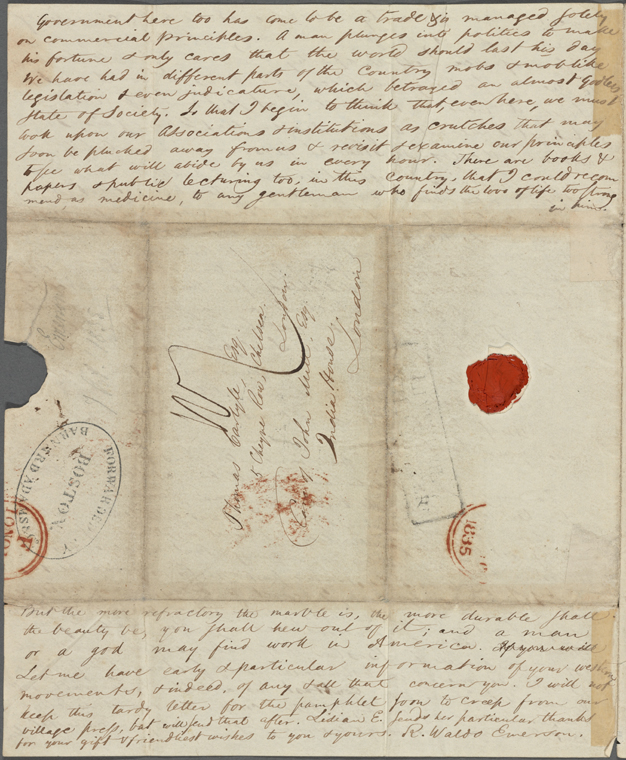 Government here too has come to be a trade & is managed solely
on commercial principles. A man plunges into politics to make
his fortune & only cares that the world should last his day
We have had in different parts of the Country mobs & moblike
legislation & even judicature, which betrayed an almost godless
state of Society. So that I begin to think that even here, we must
look upon our Associations & institutions as crutches that may
soon be plucked away from us & revisit & examine our principles
to see what will abide by us in every hour. There are books &
papers & public lecturing too, in this country, that I could recom
mend as medicine, to any gentleman who finds the love of life too strong
in him.
Thomas Carlyle Esq
5 Cheyne Row, Chelsea
London.
Care of John Mill, Esq
India House,
London
FORWARDED
BOSTON
BARNARD ADAMS &
1835
But the more refractory the marble is, the more durable shall
the beauty be, you shall hew out of it; and a man
or a god may find work in America.
Let me have early & particular information of your western
movements, & indeed, of any & all that concern you. I will not
keep this tardy letter for the pamphlet soon to creep from our
village press, but will send that after. Lidian E. sends her particular thanks
for your gift & friendliest wishes to you & yours. R. Waldo Emerson.